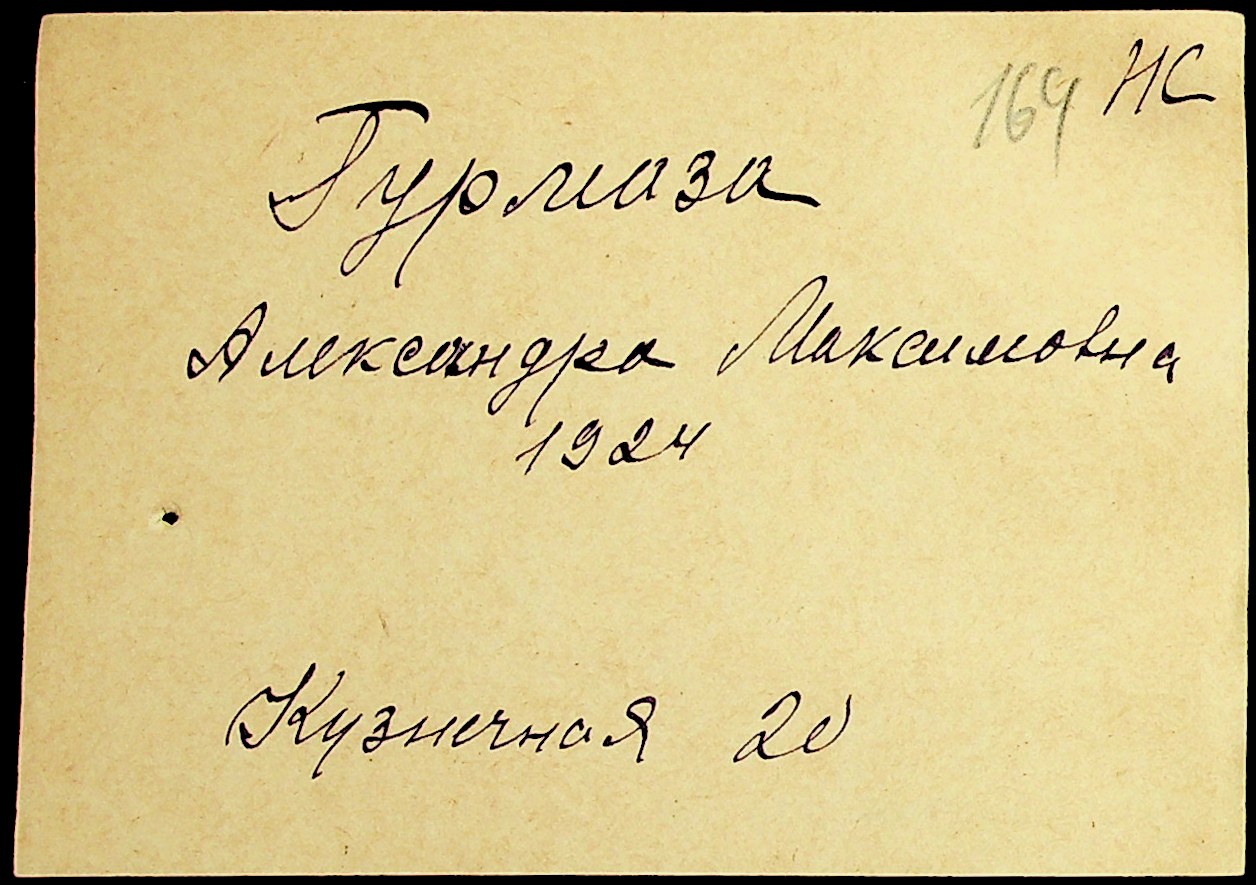 164 НС
Гурмаза
Александра Максимовна
1924
Кузнечная 20